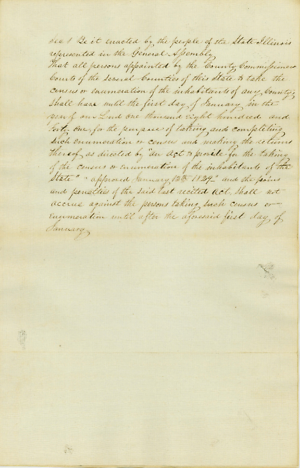 Sec 1 Be it enacted by the people of the State Illinois
represented in the General Assembly
That all persons appointed by the County Commissioners
Courts of the several Counties of this State to take the
census or enumeration of the inhabitants of any County,
Shall have until the first day of January in the
year of our Lord one thousand eight hundred and
forty one for the purpose of taking and completing
such enumeration or census and making the returns
thereof, as directed by "An Act to provide for the taking
of the census or enumeration of the inhabitants of the
State" approved January and the fines
and penalties of the said last recited Act, shall not
accrue against the persons taking such census or
enumeration until after the aforesaid first day of
January,